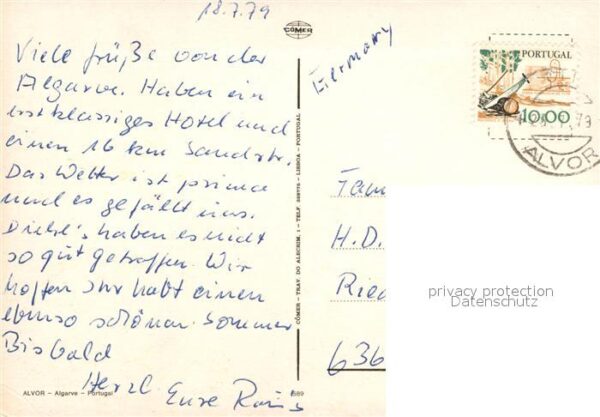 18.7.79
CÔMER
Viele Grüße von der
Algarve. Haben ein
erstklassiges Hotel und
einen 16 km Sandstr.
Das Wetter ist prima
und es gefällt uns.
haben es nicht
so gut getroffen. Wir
hoffen Ihr habt einen
ebenso schönen Sommer
Bis bald
Herzl. Eure
ALVOR – Algarve – Portugal
CÔMER – TRAV. DO ALECRIM, 1 – TELF. – LISBOA – PORTUGAL
Germany
PORTUGAL
10.00
79
ALVOR
Fam
H.D.
Ried
636
privacy protection
Datenschutz